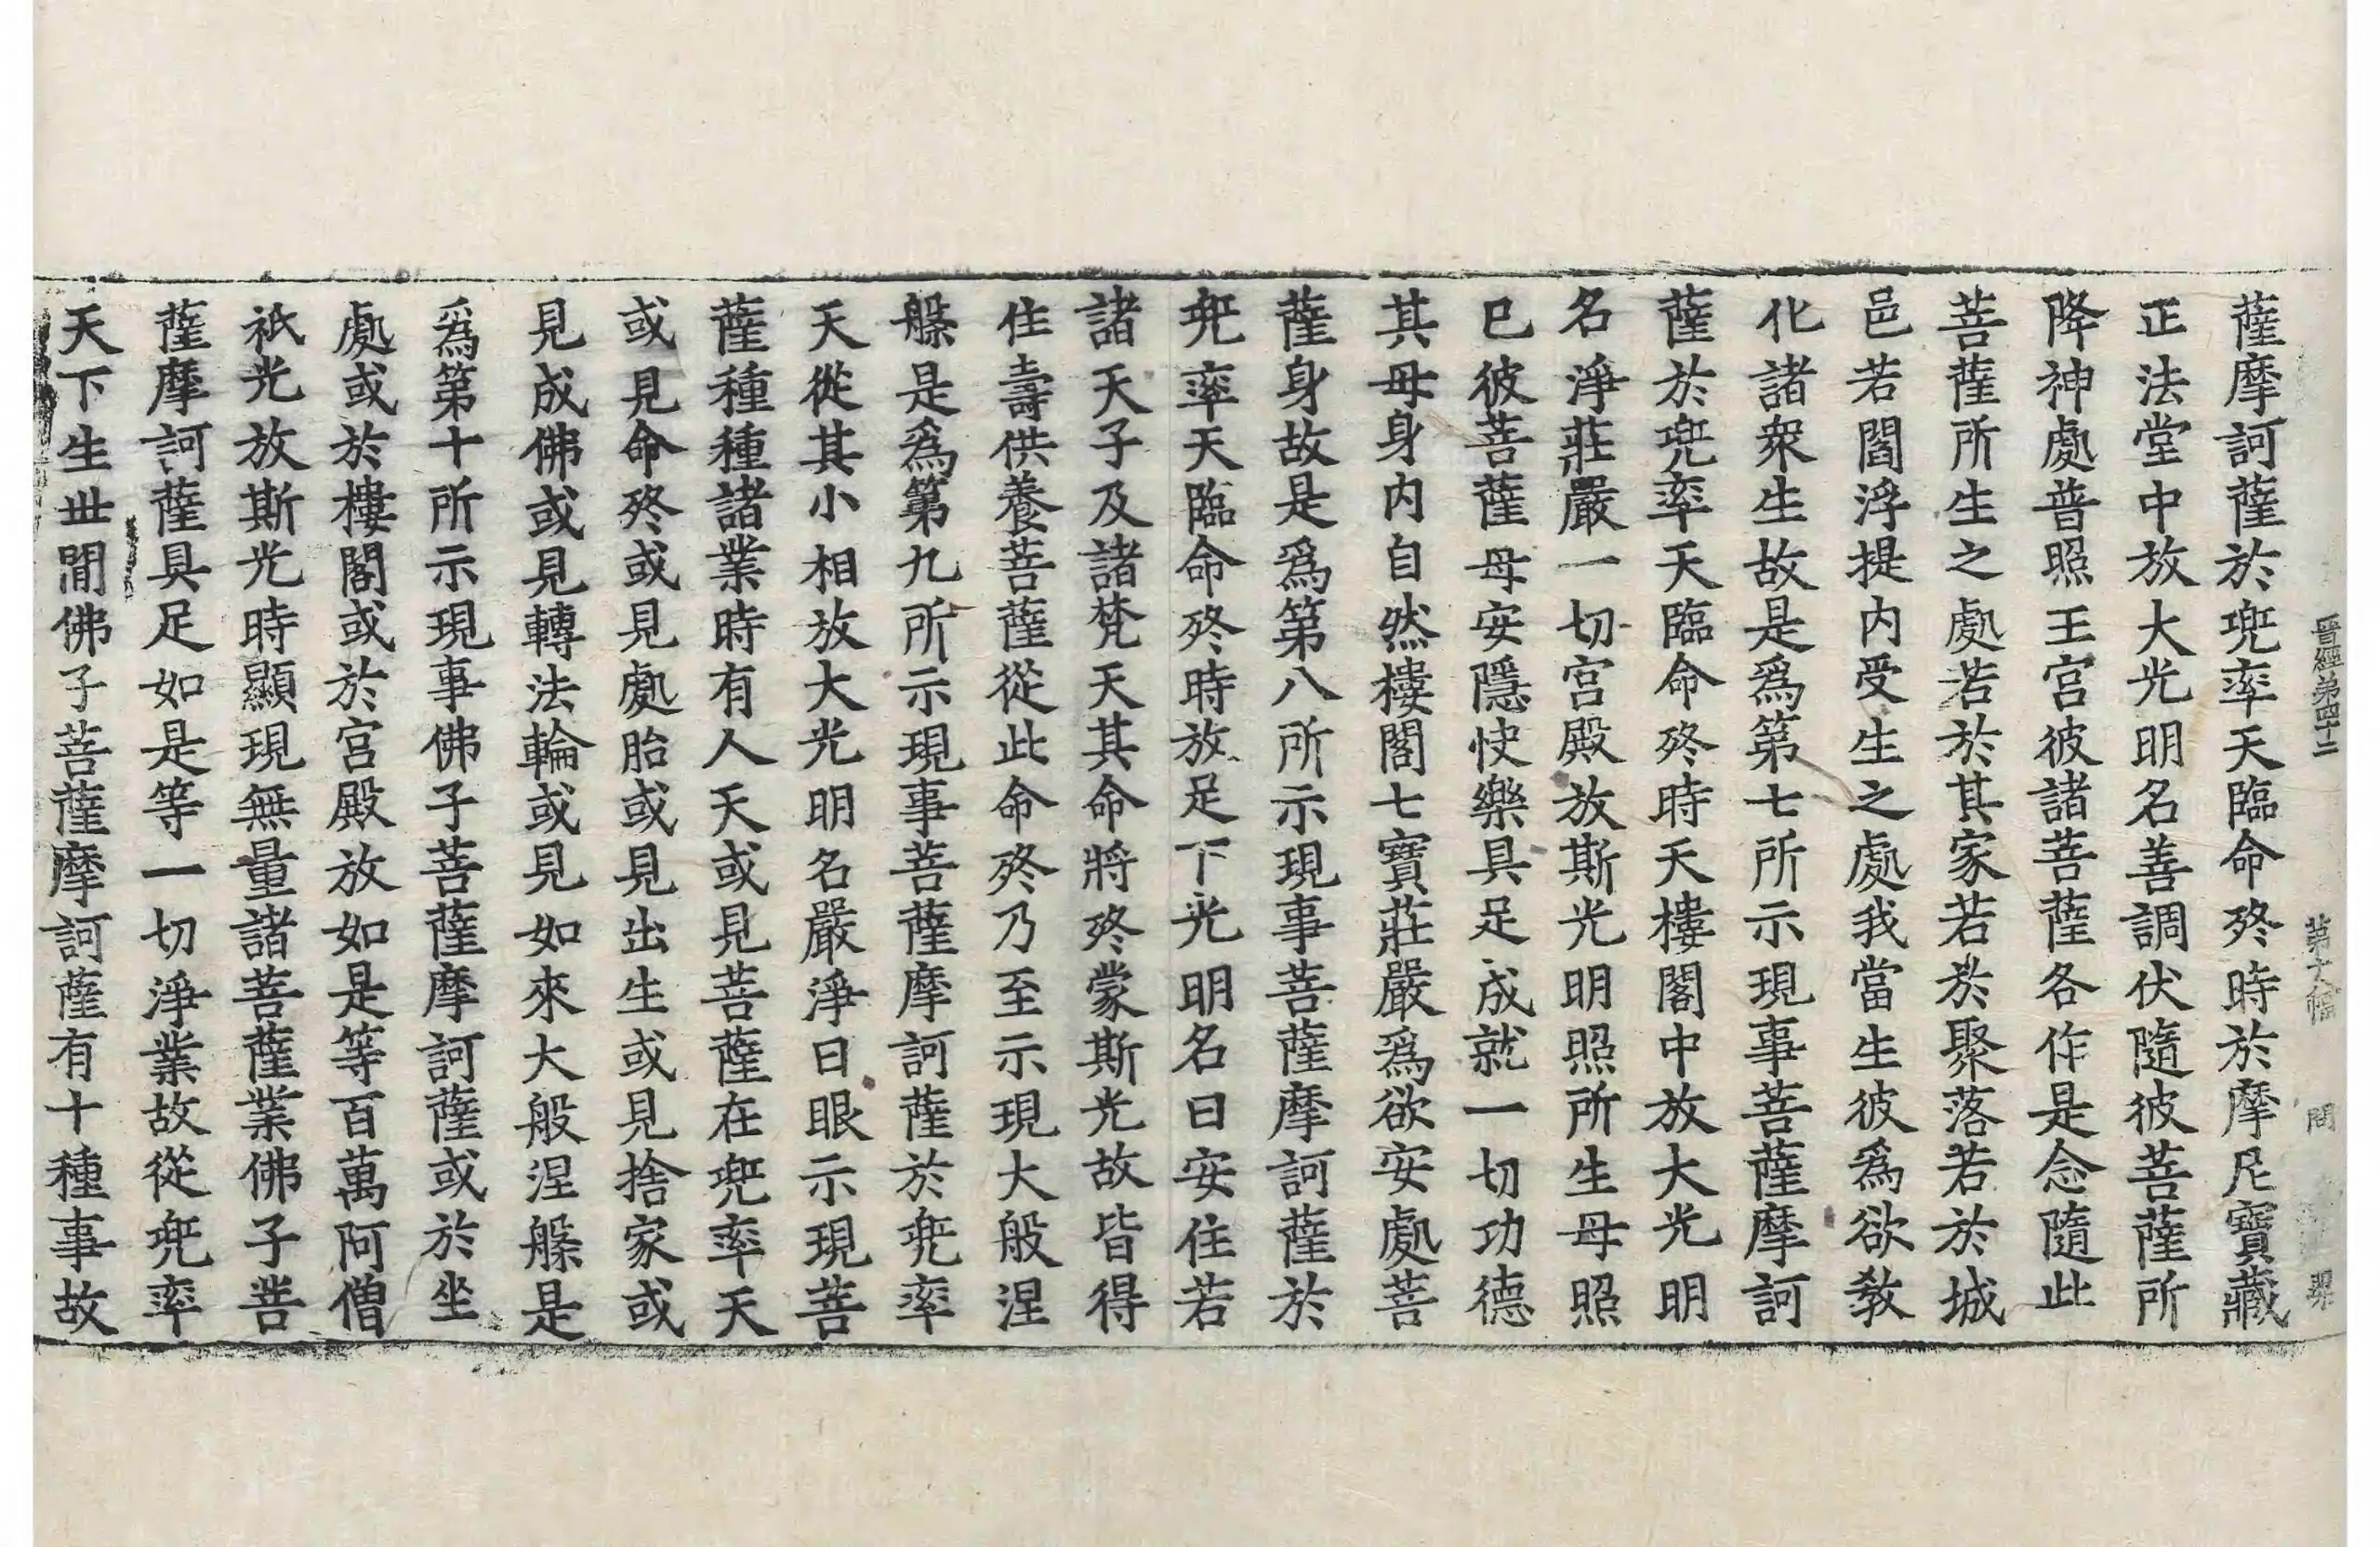 晋經弟四十二 第十八幅 問
薩摩訶薩於兜率天臨命終時於摩尼寶藏
正法堂中放大光明名善調伏隨彼菩薩所
降神處普照王宮彼諸菩薩各作是念隨此
菩薩所生之處若於其家若於聚落若於城
邑若閻浮提內受生之處我當生彼爲欲教
化諸衆生故是爲第七所示現事菩薩摩訶
薩於兜率天臨命終時天樓閣中放大光明
名淨莊嚴一切宮殿放斯光明照所生母照
已彼菩薩母安隱快樂具足成就一切功德
其母身內自然樓閣七寶莊嚴爲欲安處菩
薩身故是爲第八所示現事菩薩摩訶薩於
兜率天臨命終時放足下光明名曰安住若
諸天子及諸梵天其命將終蒙斯光故皆得
住壽供養菩薩從此命終乃至示現大般涅
槃是爲第九所示現事菩薩摩訶薩於兜率
天從其小相放大光明名嚴淨日眼示現菩
薩種種諸業時有人天或見菩薩在兜率天
或見命終或見處胎或見出生或見捨家或
見成佛或見轉法輪或見如來大般涅槃是
爲第十所示現事佛子菩薩摩訶薩或於坐
處或於樓閣或於宮殿放如是等百萬阿僧
祇光放斯光時顯現無量諸菩薩業佛子菩
薩摩訶薩具足如是等一切淨業故從兜率
天下生世間佛子菩薩摩訶薩有十種事故